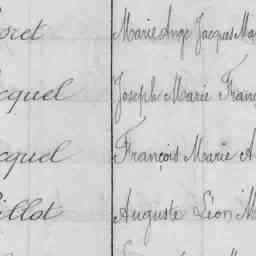 oret Marie Ange Jacques Ma
cquel Joseph Marie Fran
cquel François Marie A
illot Auguste Léon M